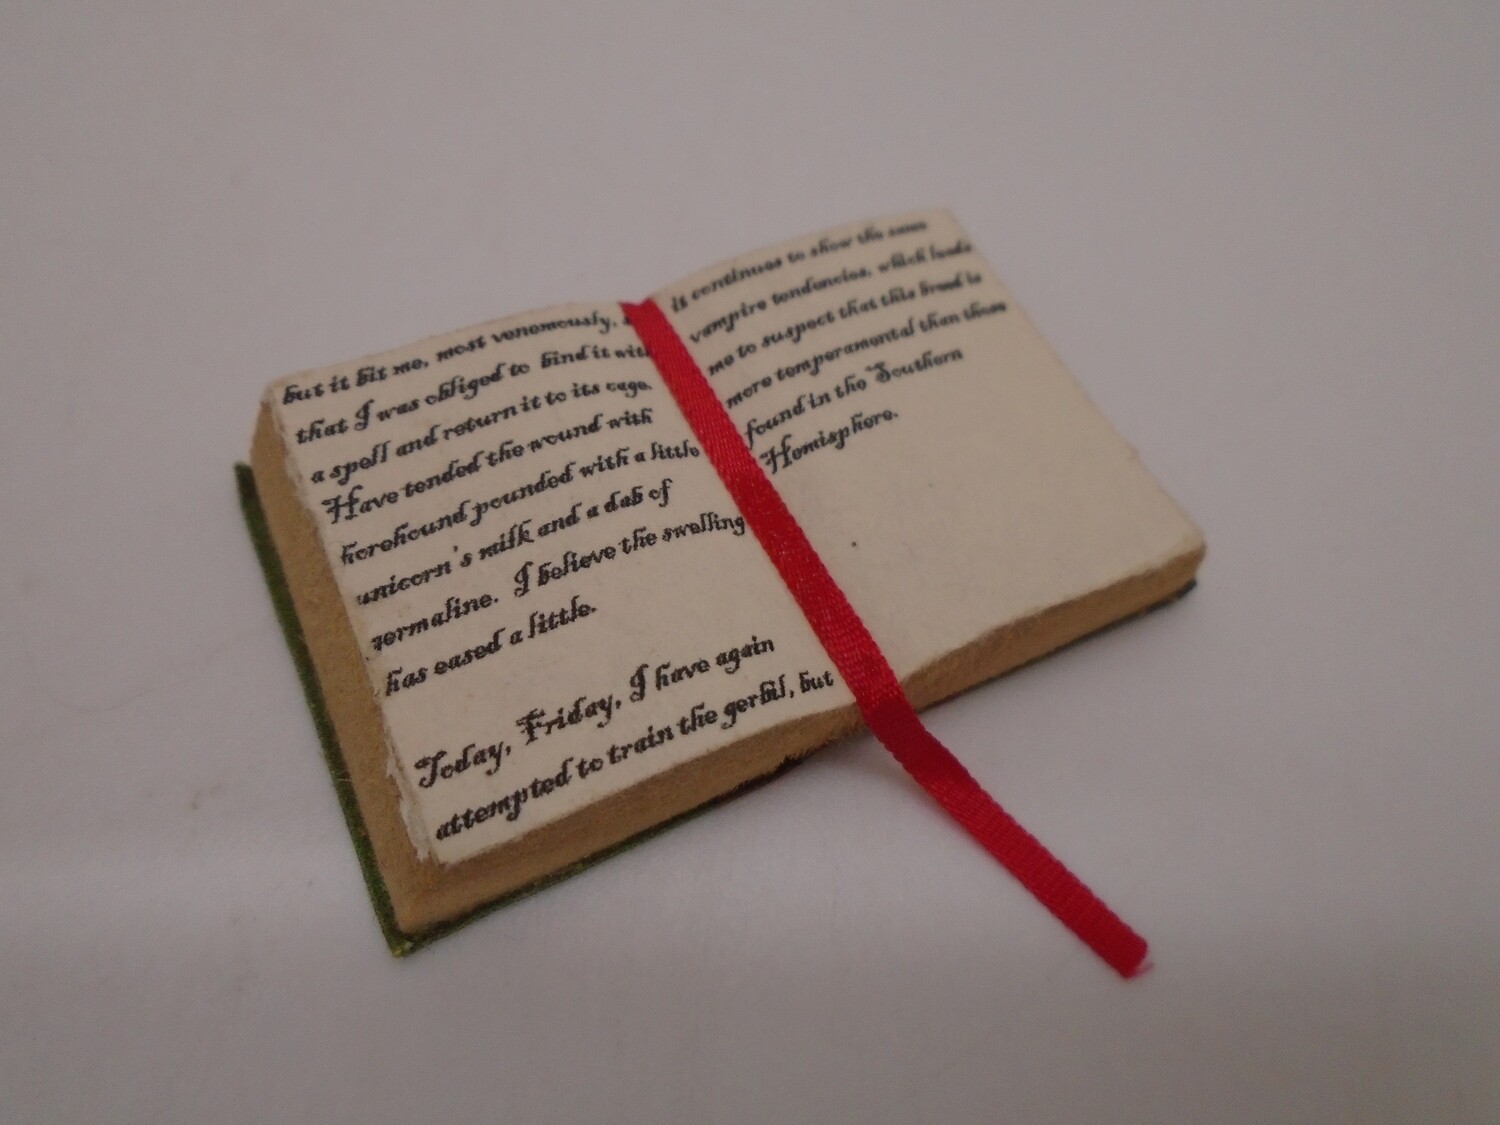 but it bit me, most venomously,
that I was obliged to bind it with
a spell and return it to its cage.
Have tended the wound with
horehound pounded with a little
unicorn's milk and a dab of
germaline. I believe the swelling
has eased a little.
Today, Friday, I have again
attempted to train the gerbil, but
it continues to show the same
vampire tendencies, which leads
me to suspect that this breed is
more temperamental than those
found in the Southern
Hemisphere.